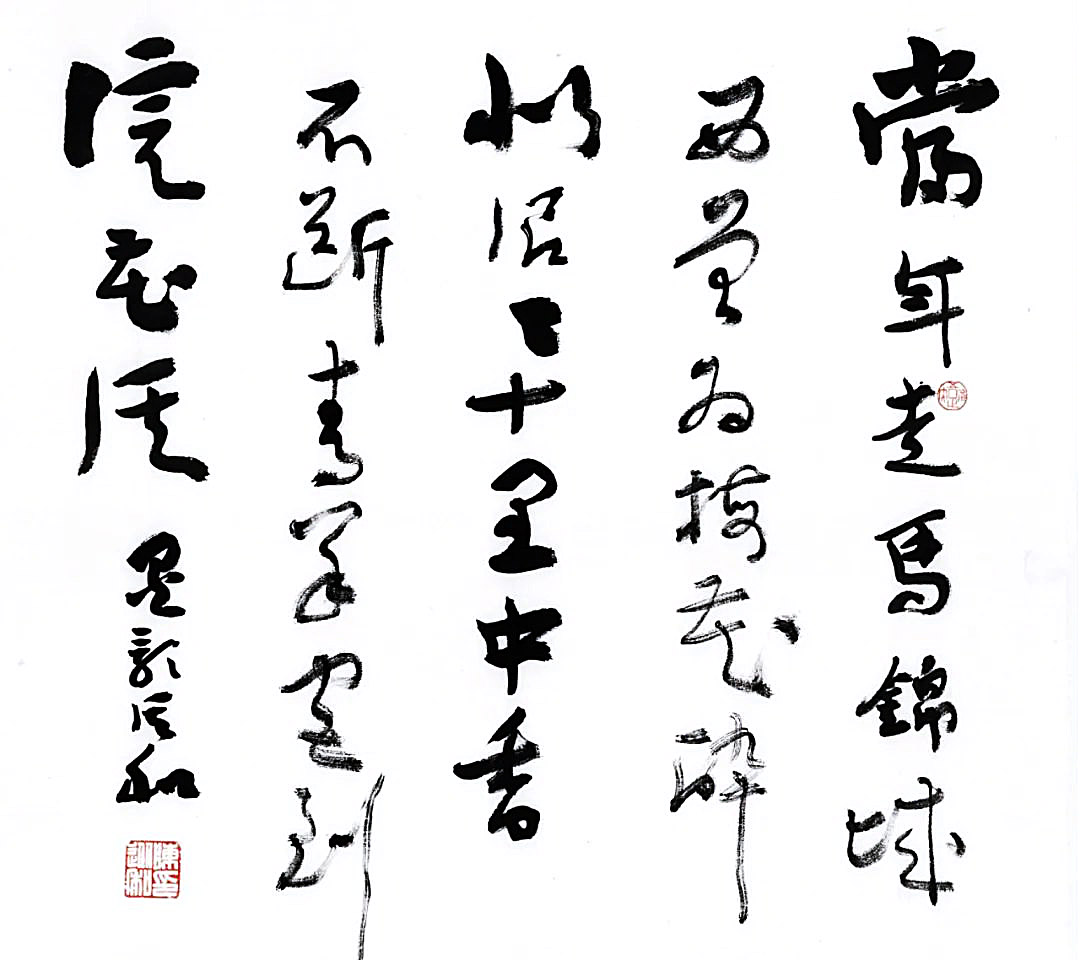 當年走馬錦城
西曾為梅花醉
似泥二十里中香
不斷青羊宮到
浣花溪